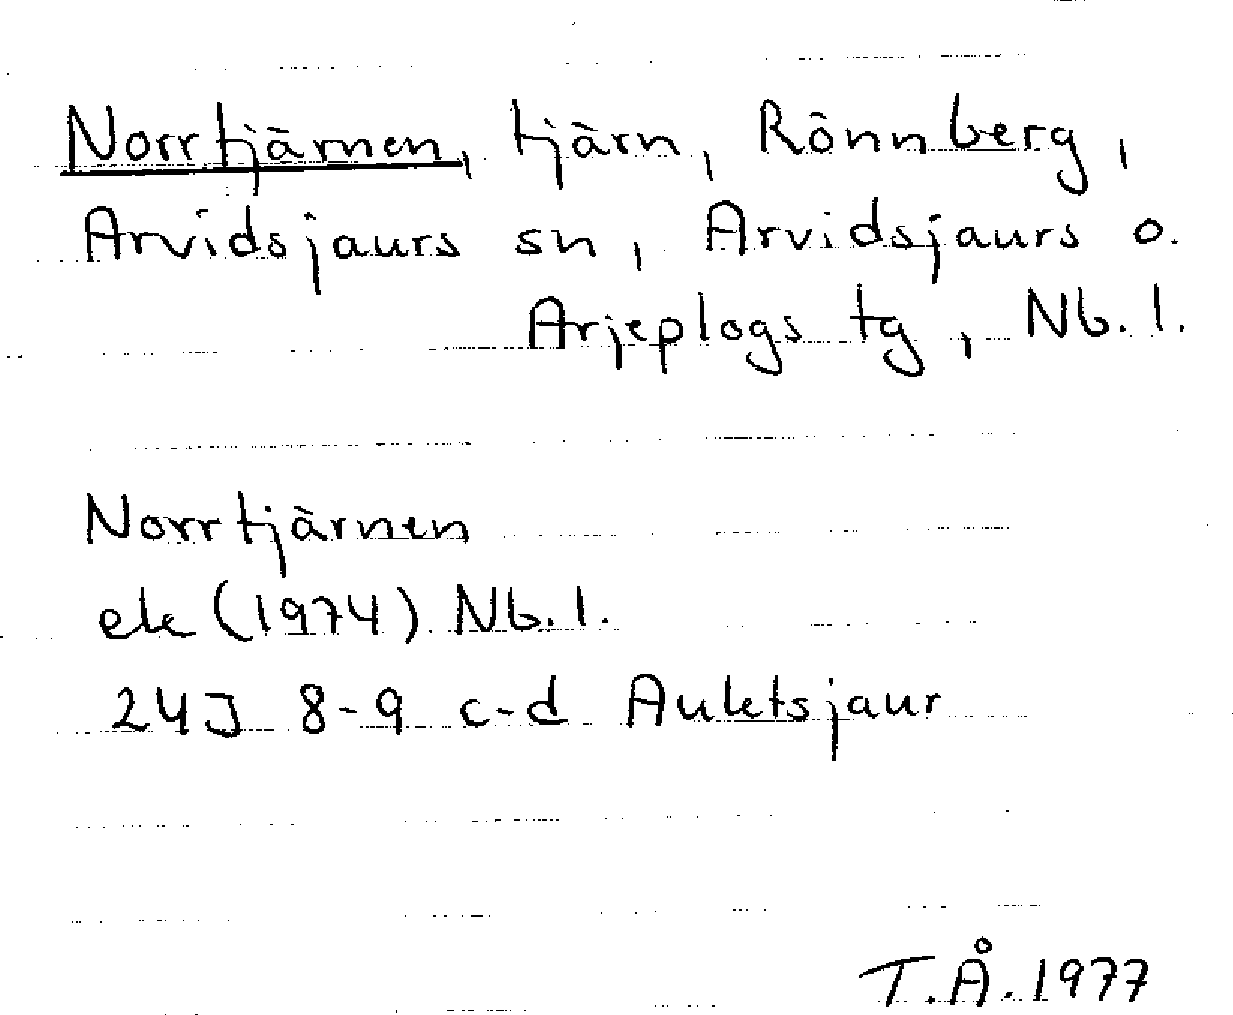 Norrtjärnen, tjärn, Rönnberg,
Arvidsjaurs sn, Arvidsjaurs o.
Arjeplogs tg, Nb. l.
Norrtjärnen
ek (1974) Nb. l.
24J 8-9 c-d Auktsjaur
T.Å. 1977